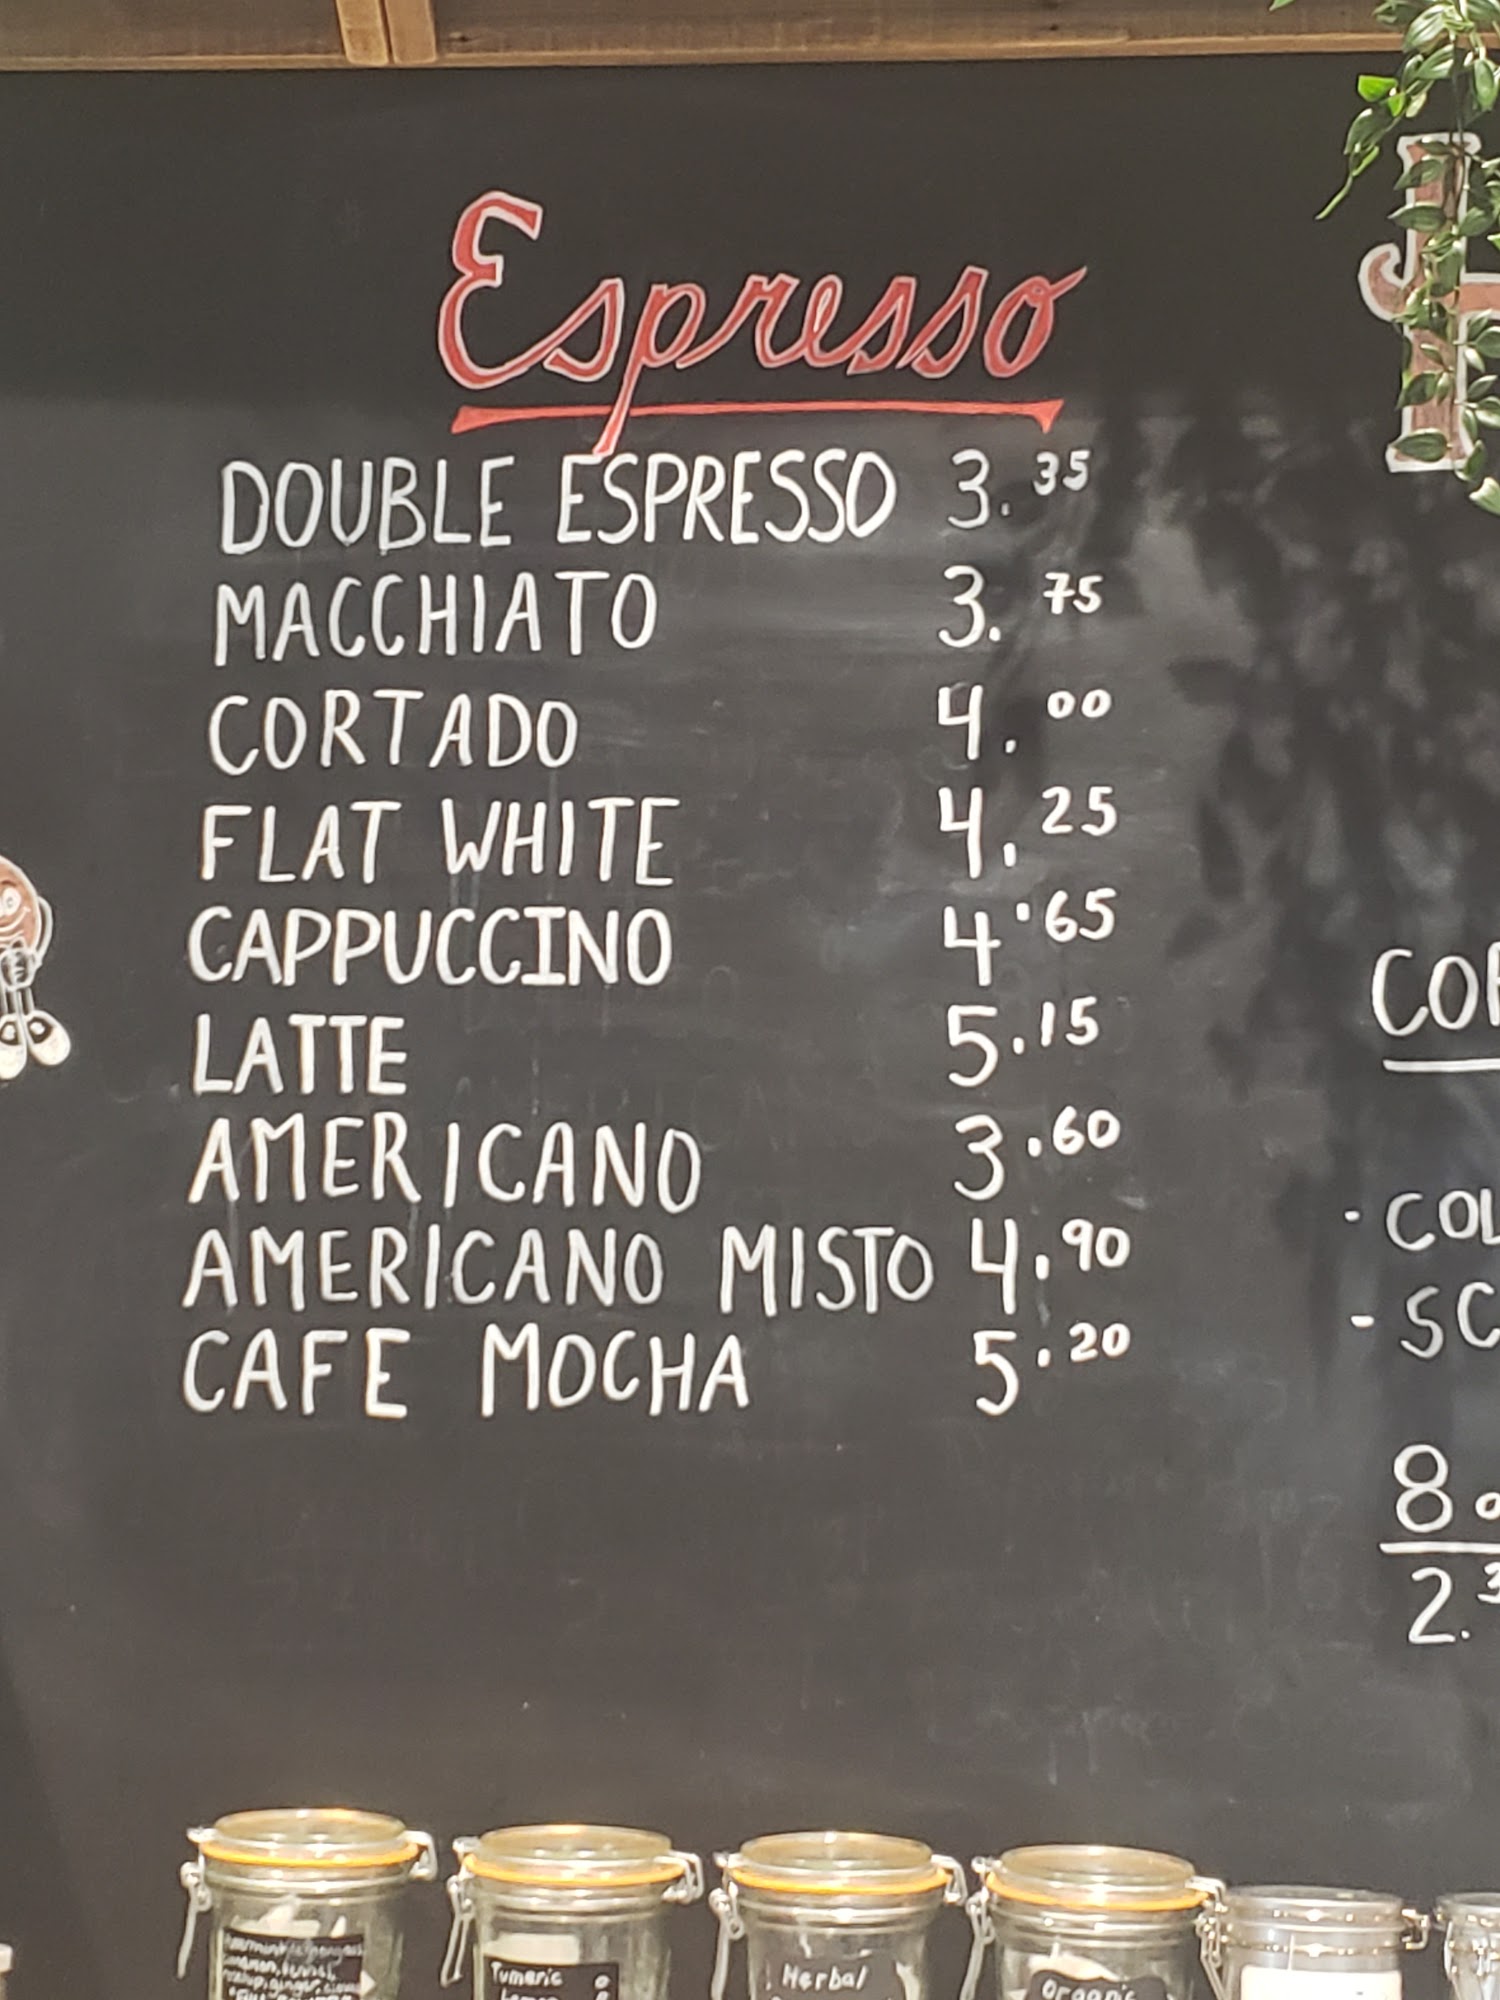 Espresso
DOUBLE ESPRESSO 3.35
MACCHIATO 3.75
CORTADO 4.00
FLAT WHITE 4.25
CAPPUCCINO 4.65
LATTE 5.15
AMERICANO 3.60
AMERICANO MISTO 4.90
CAFE MOCHA 5.20
- COL
- SC
8
2.3
Tumeric
Herbal
Organic